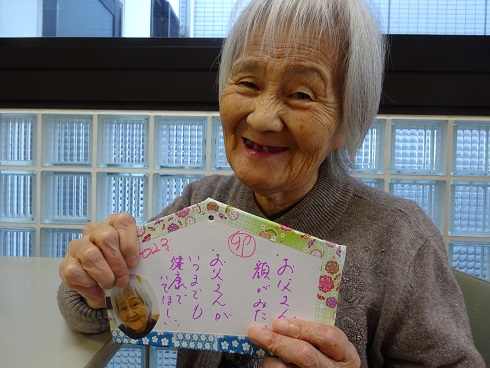 2023
卯
お父さん、
顔がみた
お父さんが
いつまでも
健康で
いてほしい